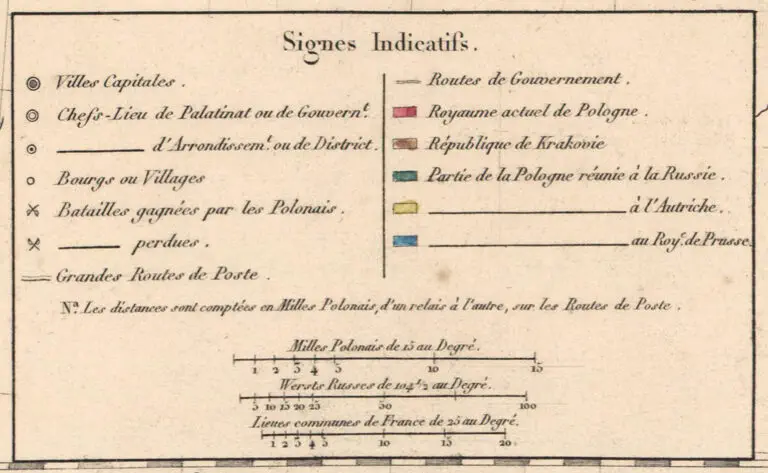 Signes Indicatifs.
Villes Capitales.
Chefs-Lieu de Palatinat ou de Gouvernt.
d'Arrondissemt. ou de District.
Bourgs ou Villages
Batailles gagnées par les Polonais.
perdues.
Grandes Routes de Poste.
Routes de Gouvernement.
Royaume actuel de Pologne.
République de Krakovie
Partie de la Pologne réunie à la Russie.
à l'Autriche.
au Roye. de Prusse.
Na. Les distances sont comptées en Milles Polonais, d'un relais à l'autre, sur les Routes de Poste.
Milles Polonais de 15 au Degré.
1 2 3 4 5 10 15
Wersts Russes de 104 1/2 au Degré.
5 10 15 20 25 50 100
Lieues communes de France de 25 au Degré.
1 2 3 4 5 10 15 20